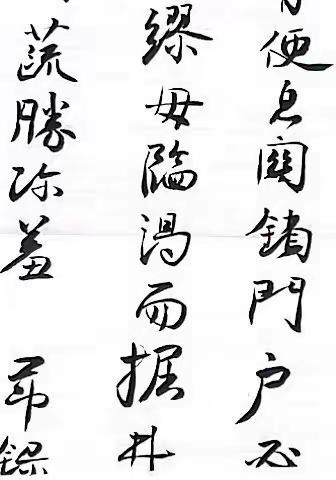 便息關鎖門户必
繆毋臨渴而掘井
蔬勝珍羞